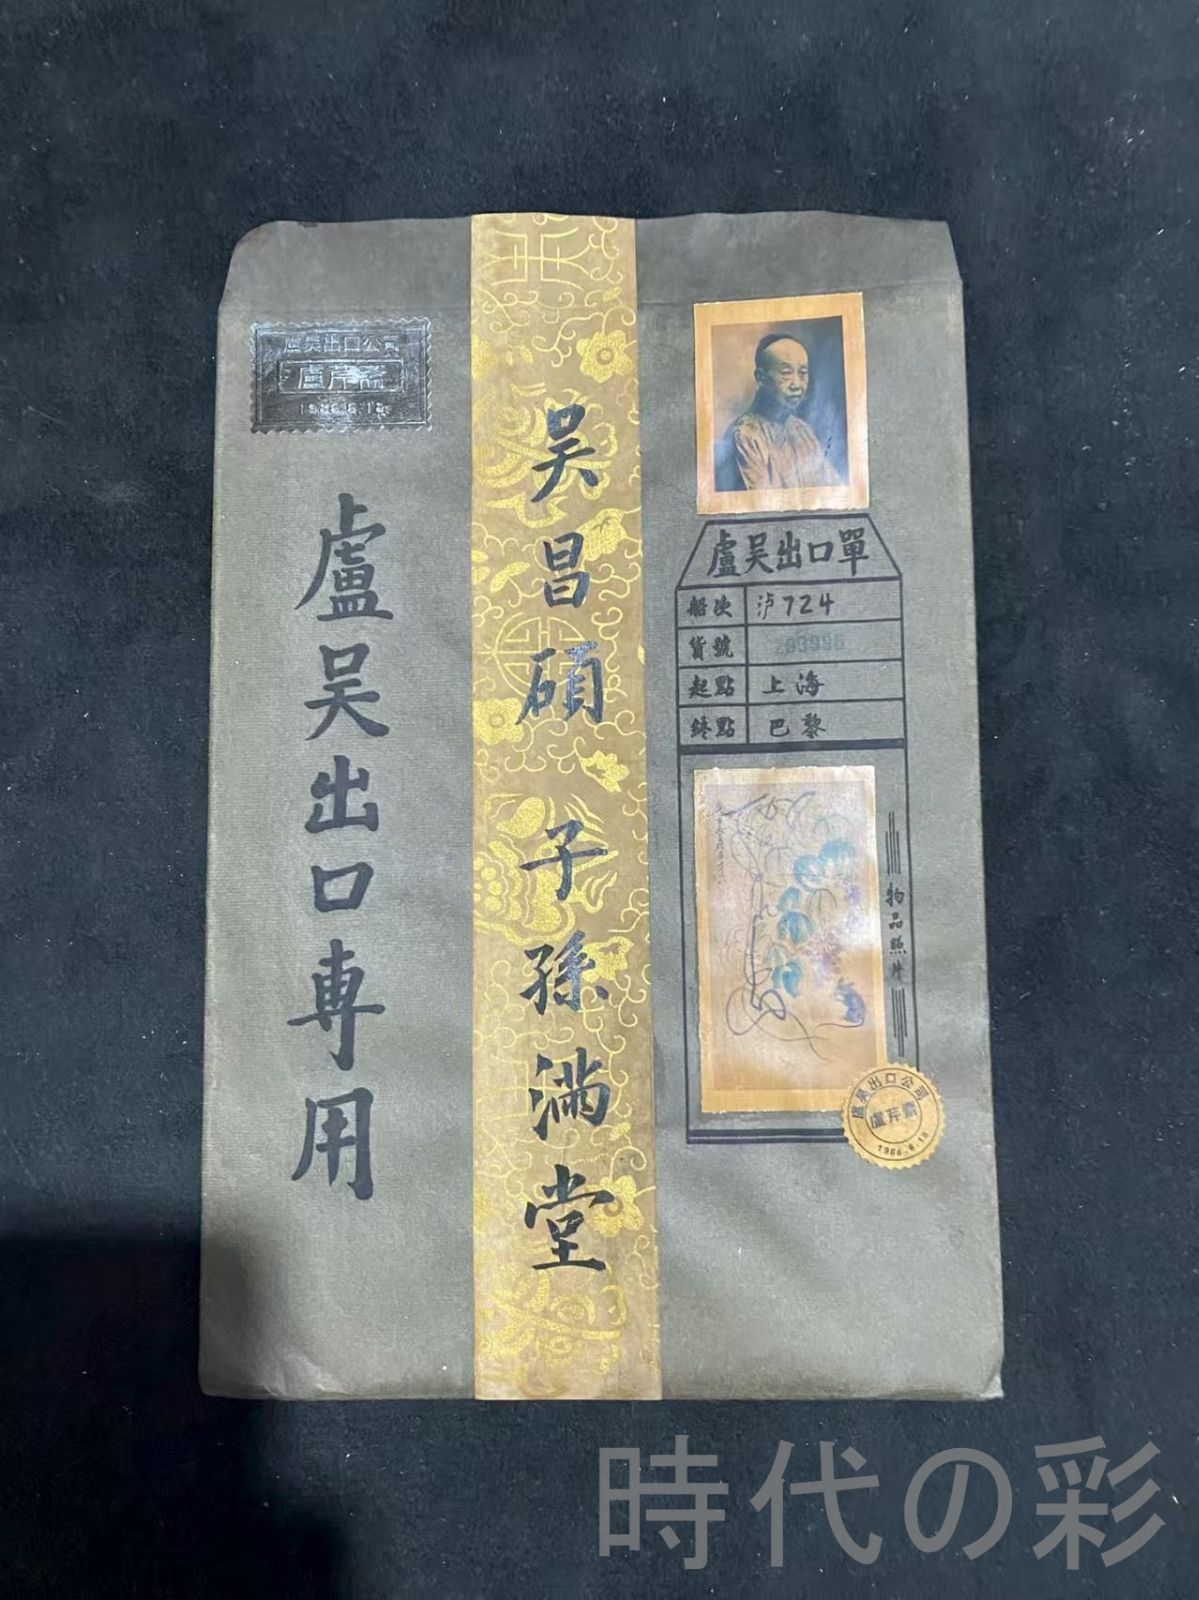 盧吳出口公司
盧芹齋
盧吳出口専用
吴昌碩 子孫滿堂
盧吴出口單
船次 泸724
貨號 203996
起點 上海
終點 巴黎
物品照片
盧吴出口公司
盧芹齋
1986.6.18
時代の彩